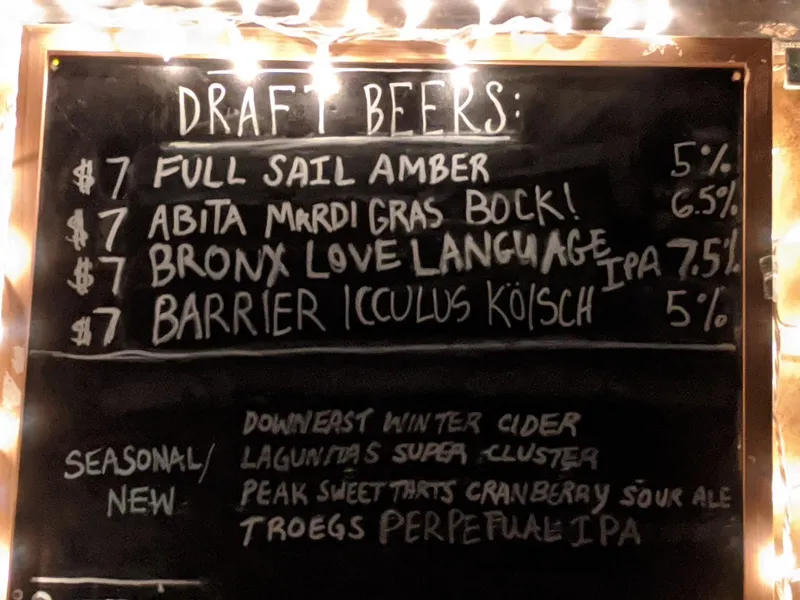 DRAFT BEERS:
$7 FULL SAIL AMBER 5%
$7 ABITA MARDI GRAS BOCK! 6.5%
$7 BRONX LOVE LANGUAGE IPA 7.5%
$7 BARRIER ICCULUS KÖLSCH 5%
SEASONAL/
NEW
DOWNEAST WINTER CIDER
LAGUNITAS SUPER CLUSTER
PEAK SWEET TARTS CRANBERRY SOUR ALE
TROEGS PERPETUAL IPA